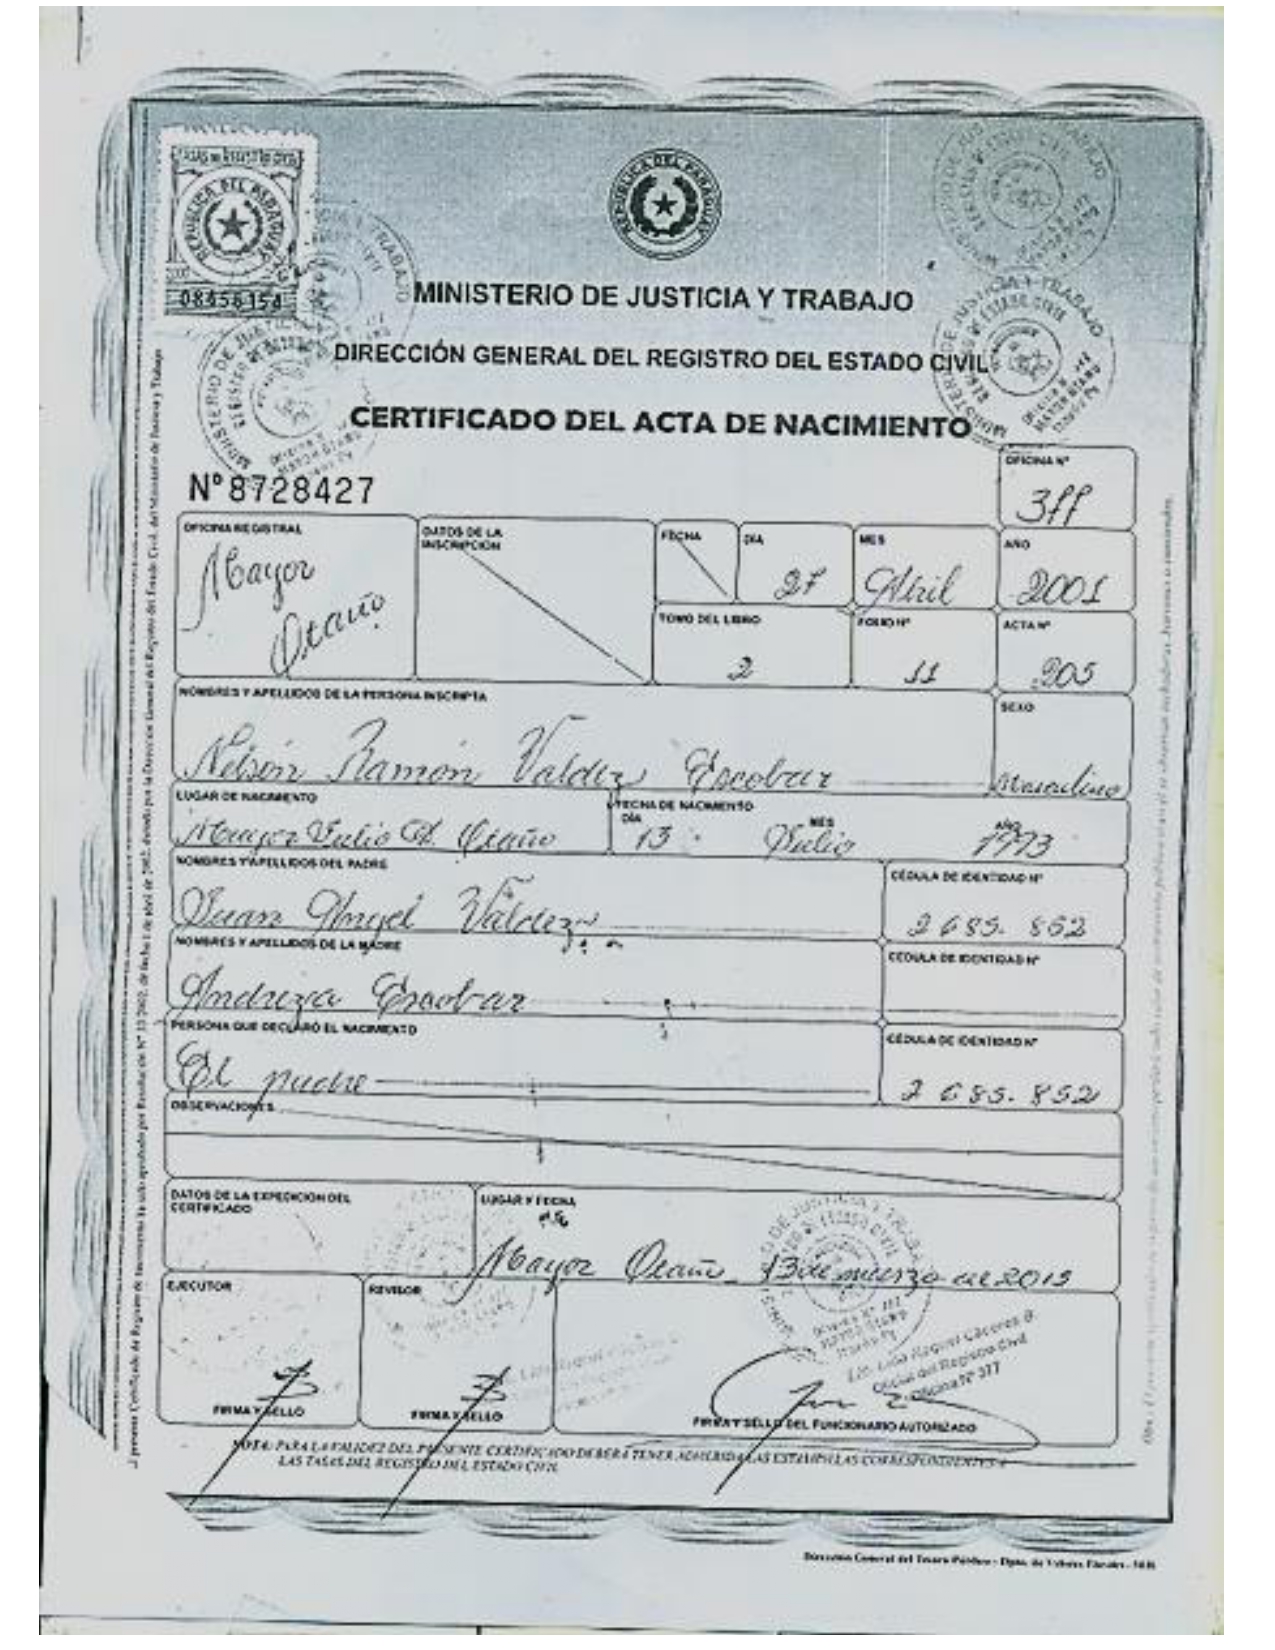 TASAS DE REGISTRO CIVIL
REPUBLICA DEL PARAGUAY
08456154
REPUBLICA DEL PARAGUAY
MINISTERIO DE JUSTICIA Y TRABAJO
DIRECCIÓN GENERAL DEL REGISTRO DEL ESTADO CIVIL
CERTIFICADO DEL ACTA DE NACIMIENTO
Nº 8728427
OFICINA Nº
377
OFICINA REGISTRAL
Mayor
Otaño
DATOS DE LA
INSCRIPCIÓN
FECHA
DÍA
27
MES
Abril
AÑO
2001
TOMO DEL LIBRO
2
FOLIO Nº
11
ACTA Nº
205
NOMBRES Y APELLIDOS DE LA PERSONA INSCRIPTA
Nelson Ramón Valdez Escobar
SEXO
Masculino
LUGAR DE NACIMIENTO
Mayor Julio D. Otaño
FECHA DE NACIMIENTO
DÍA
13
MES
Julio
AÑO
1973
NOMBRES Y APELLIDOS DEL PADRE
Juan Angel Valdez
CÉDULA DE IDENTIDAD Nº
2685.852
NOMBRES Y APELLIDOS DE LA MADRE
Andreza Escobar
CÉDULA DE IDENTIDAD Nº
PERSONA QUE DECLARÓ EL NACIMIENTO
El padre
CÉDULA DE IDENTIDAD Nº
2685.852
OBSERVACIONES
DATOS DE LA EXPEDICIÓN DEL
CERTIFICADO
LUGAR Y FECHA
Mayor Otaño 13 de marzo de 2015
EJECUTOR
FIRMA Y SELLO
REVISOR
FIRMA Y SELLO
Oficial del Registro Civil
Oficina Nº 377
FIRMA Y SELLO DEL FUNCIONARIO AUTORIZADO
NOTA: PARA LA VALIDEZ DEL PRESENTE CERTIFICADO DEBERÁ TENER ADHERIDA LAS ESTAMPILLAS CORRESPONDIENTES A
LAS TASAS DEL REGISTRO DEL ESTADO CIVIL
Dirección General del Tesoro Público - Dpto. de Valores Fiscales